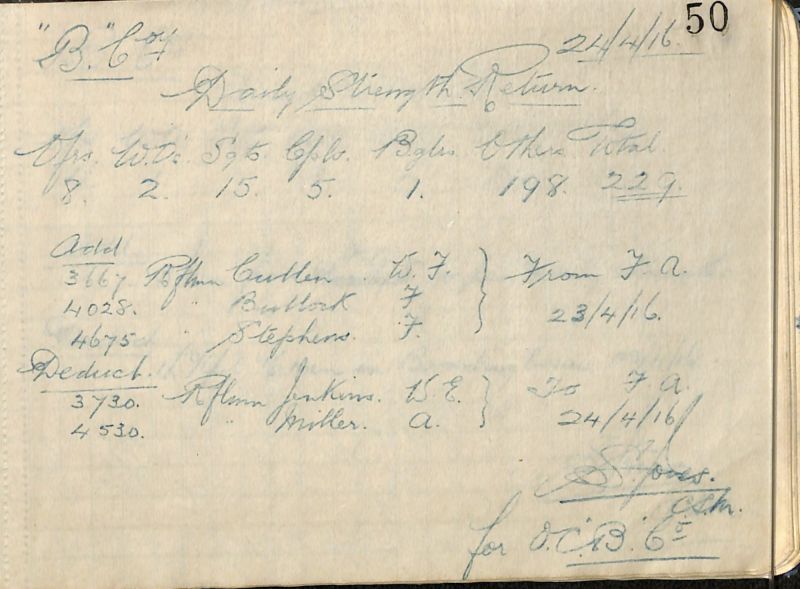 50
"B." Coy 24/4/16.
Daily Strength Return.
Ofrs. W.O's Sgts. Cpls. Bglrs Others Total
8. 2. 15. 5. 1. 198. 229.
Add
3667 Rflmn Cullen. W. F. } From F. A.
4028. " Bullock F. } 23/4/16.
4675 " Stephens. F. }
Deduct.
3730. Rflmn Jenkins. W. E. } To F. A.
4530. " Miller. A. } 24/4/16
S Jones.
C.S.M.
for O.C. "B" Co